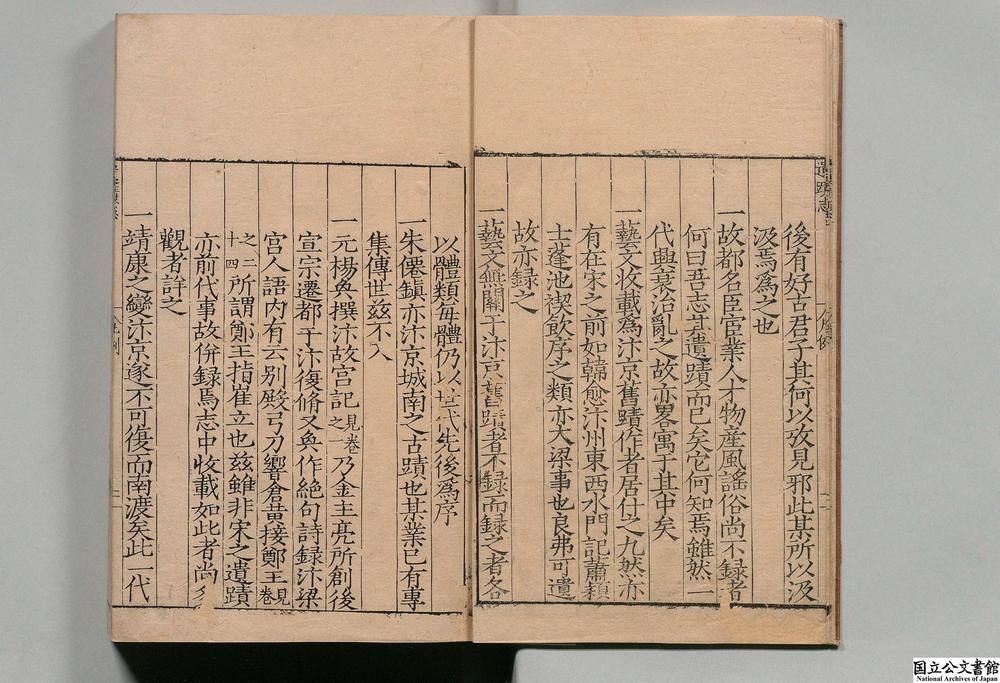 後有好古君子其何以攷見邪此某所以汲
汲焉爲之也
一故都名臣宦業人才物産風謠俗尚不録者
何曰吾志其遺蹟而已矣它何知焉雖然一
代興衰治亂之故亦畧寓于其中矣
一藝文收載爲汴京舊蹟作者居什之九然亦
有在宋之前如韓愈汴州東西水門記蕭穎
士蓬池禊飲序之類亦大梁事也良弗可遺
故亦録之
一藝文無關于汴京舊蹟者不録而録之者各
以體類每體仍以世代先後爲序
一朱僊鎮亦汴京城南之古蹟也某業已有專
集傳世茲不入
一元楊奐撰汴故宮記見卷之一乃金主亮所創後
宣宗遷都于汴復脩又奐作絶句詩録汴梁
宮人語内有云别殿弓刀響倉黄接鄭王見卷
之二十四所謂鄭王指崔立也茲雖非宋之遺蹟
亦前代事故併録焉志中收載如此者尚
觀者詳之
一靖康之變汴京遂不可復而南渡矣此一代
遺蹟志
凡例
凡例
国立公文書館
National Archives of Japan